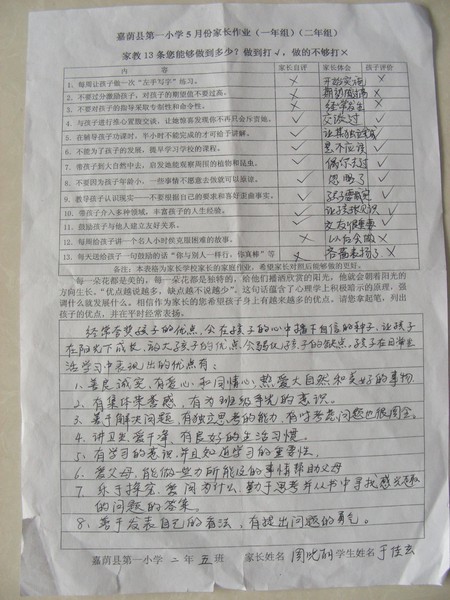 嘉荫县第一小学5月份家长作业（一年组）（二年组）
家教13条您能够做到多少？做到打√，做的不够打×
内 容 家长自评 家长体会 孩子评价
1、每周让孩子做一次“左手写字”练习。 × ×
2、不要过分激励孩子，对孩子的期望值不要过高。 × ×
3、不要对孩子的指导采取专制性和命令性。 × 经常发生 ×
4、与孩子进行推心置腹交谈，让她惊喜发现你不再只会斥责她。 √ 交谈过 √
5、在辅导孩子功课时，半小时不能完成的才可给予讲解。 √ √
6、不能为了孩子的发展，提早学习学校的课程。 √ √
7、番孩子到大自然中去，启发她能观察周围的植物和昆虫。 √ 偶尔去过 √
8、不要因为孩子年龄小，一些事情不愿意去做就可以原谅。 √ √
9、教导孩子认识现实——不要想根据自己的要求和喜好歪曲事实。 √ √
10、带孩子介入多种领域，丰富孩子的人生经验。 √ √
11、鼓励孩子与他人建立友好关系。 √ √
12、每周给孩子讲一个名人小时候克服困难的故事。 × 以后会做 ×
13、每天送给孩子一句鼓励的话“你与别人一样行、你真棒”等 × ×
备注：本表格为家长学校家长的家庭作业，希望家长对照后能够做的更好。
每一朵花都是美的，每一朵花都是独特的，给他们播洒欣赏的阳光，他就会朝着阳光的
方向生长。“优点越说越多，缺点越不说越少”。这句话蕴含了心理学上积极暗示的原理，强
调什么就发展什么。相信作为家长的您希望孩子身上有越来越多的优点，请您拿起笔，列出
孩子的优点，并在平时经常表扬。
经常夸奖孩子的优点，会在孩子的心中播下自信的种子，让孩子
在阳光下成长，放大孩子的优点，会弱化孩子的缺点。孩子在日常生
活学习中表现出的优点有：
1、善良诚实，有爱心和同情心，热爱大自然和美好的事物
2、有集体荣誉感，有为班级争光的意识。
3、善于解决问题，有独立思考的能力，有时考虑问题也很周全。
4、讲卫生、爱干净、有良好的生活习惯。
5、有学习的意识，并且知道学习的重要性。
6、爱父母，能做些力所能及的事情帮助父母
7、乐于探究，爱问为什么，勤于思考并从书中寻找感兴趣
的问题的答案。
8、善于发表自己的看法，有提出问题的勇气。
嘉荫县第一小学 二 年 五 班 家长姓名 学生姓名 于佳玄